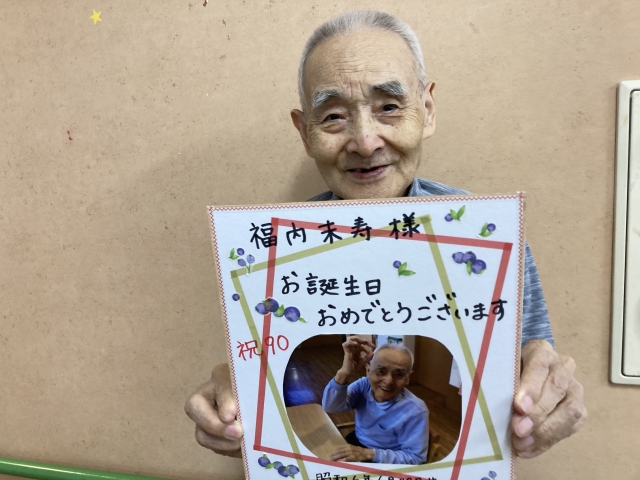 福内末寿様
お誕生日
おめでとうございます
祝90